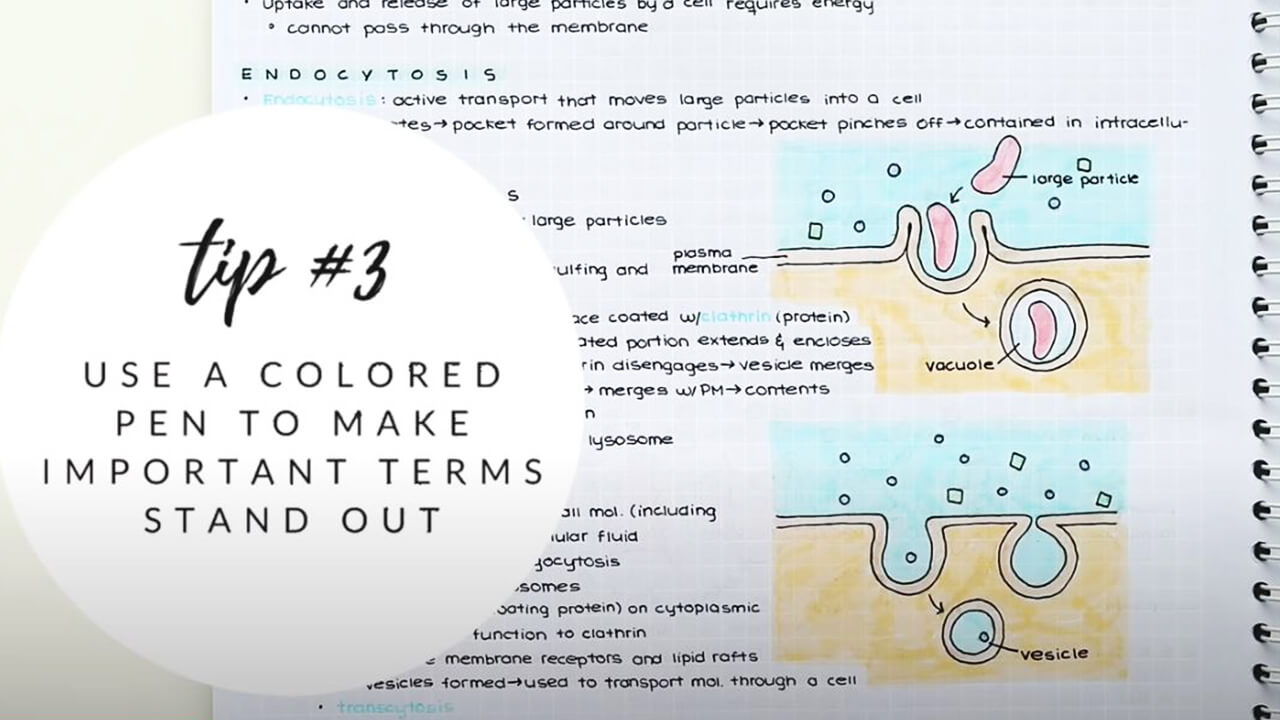 • Uptake and release of large particles by a cell requires energy
° cannot pass through the membrane
ENDOCYTOSIS
• Endocytosis: active transport that moves large particles into a cell
→pocket formed around particle→pocket pinches off→contained in intracellu-
large particles
and
coated w/clathrin (protein)
portion extends & encloses
disengages→vesicle merges
→ merges w/PM→contents
lysosome
mol. (including
fluid
protein) on cytoplasmic
function to clathrin
membrane receptors and lipid rafts
vesicles formed→used to transport mol. through a cell
• transcytosis
large particle
plasma
membrane
vacuole
vesicle
tip #3
USE A COLORED
PEN TO MAKE
IMPORTANT TERMS
STAND OUT